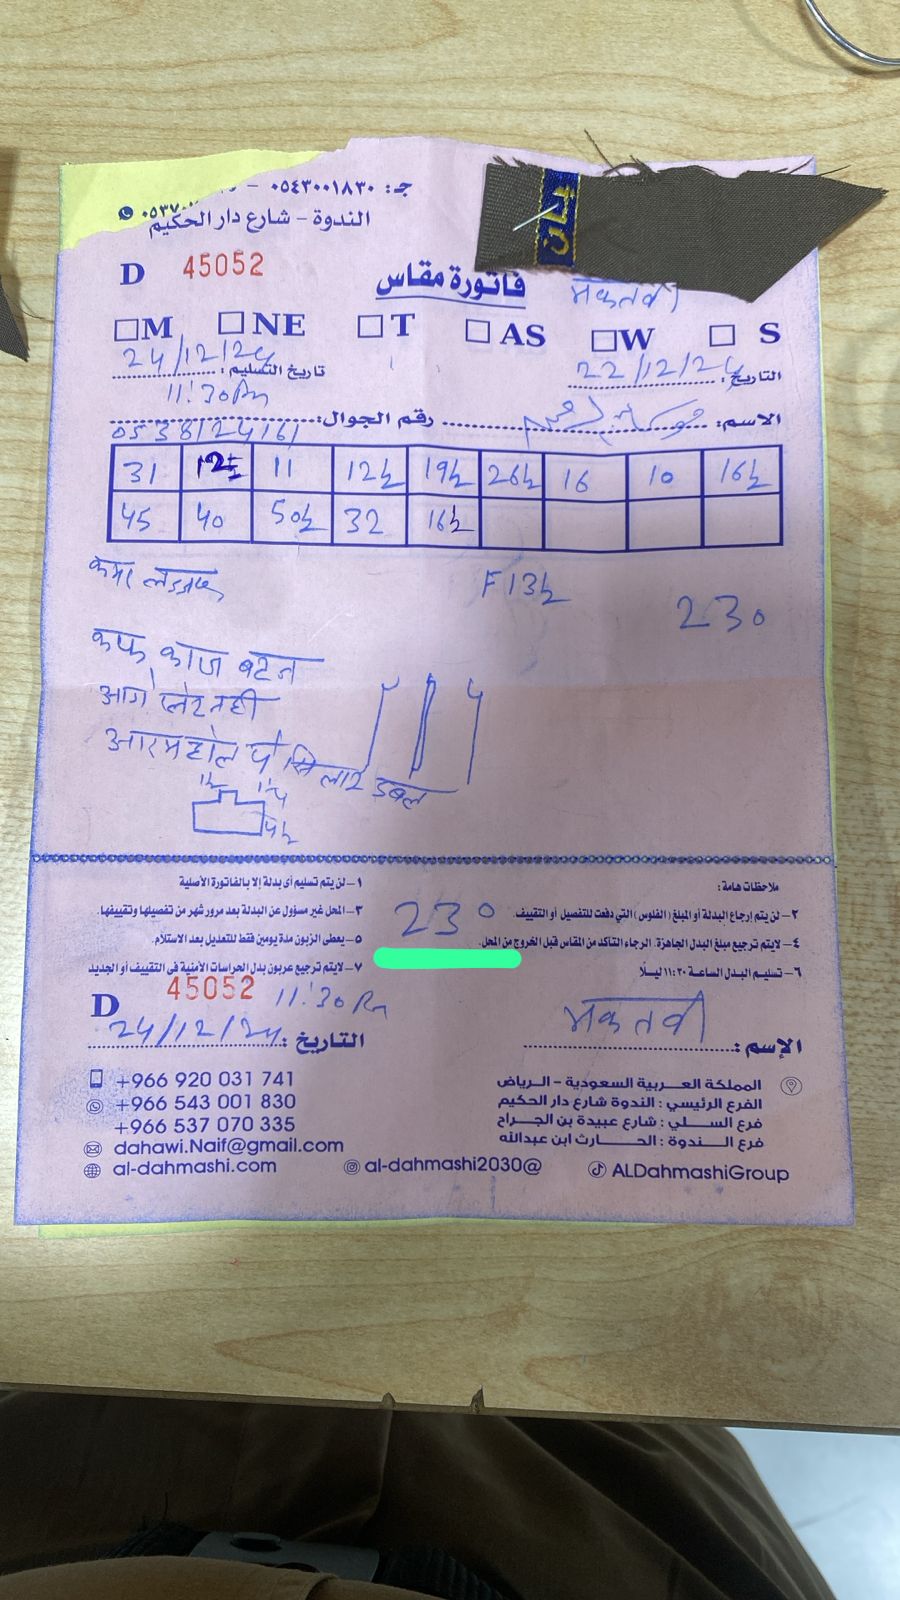 جـ: ٠٥٤٣٠٠١٨٣٠ -
الندوة - شارع دار الحكيم
D 45052
فاتورة مقاس
मकतबी
M NE T AS W S
التاريخ: 22/12/24
تاريخ التسليم: 24/12/24
11:30 Pm
الاسم:
رقم الجوال: 0538124161
31 12½ 11 12½ 19½ 26½ 16 10 16½
45 40 50½ 32 16½
F 13½
230
कफ काज बटन
आगे प्लेट नही
आरमहोल पे सिलाई डबल
1½ 1¼
4½
ملاحظات هامة:
١- لن يتم تسليم أى بدلة إلا بالفاتورة الأصلية
٢- لن يتم إرجاع البدلة أو المبلغ (الفلوس) التي دفعت للتفصيل أو التقييف.
٣- المحل غير مسؤول عن البدلة بعد مرور شهر من تفصيلها وتقييفها.
٤- لايتم ترجيع مبلغ البدل الجاهزة. الرجاء التأكد من المقاس قبل الخروج من المحل.
٥- يعطى الزبون مدة يومين فقط للتعديل بعد الاستلام.
٦- تسليم البدل الساعة ١١:٣٠ ليـلًا
٧- لايتم ترجيع عربون بدل الحراسات الأمنية فى التقييف أو الجديد
230
D 45052 11:30 Pm
الإسم: मकतबी
التاريخ: 24/12/24
المملكة العـربية السعودية - الـرياض
الفرع الرئيسي: الندوة شارع دار الحكيم
فرع الســلي: شارع عبيدة بن الجـراح
فرع النـدوة: الحــارث ابن عبدالله
+966 920 031 741
+966 543 001 830
+966 537 070 335
dahawi.Naif@gmail.com
al-dahmashi.com
al-dahmashi2030@
ALDahmashiGroup